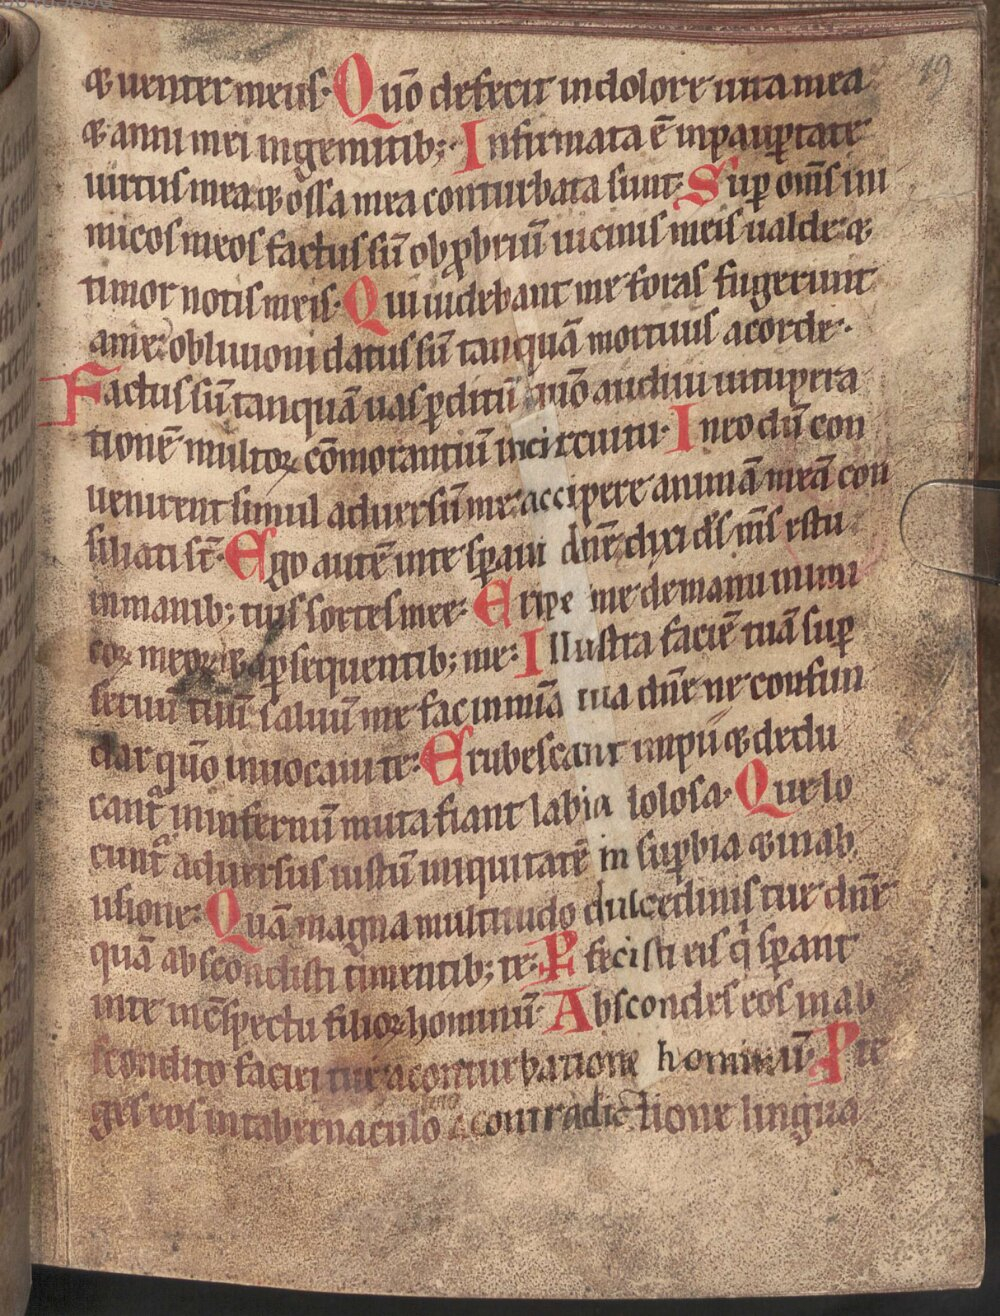 19
& uenter meus· Quō defecit in dolore uita mea
& anni mei in gemitib; · Infirmata ē in paup̱tate
uirtus mea: & ossa mea conturbata sunt: Sup̱ om̄s ini
micos meos factus sū ob p̱briū uicinis meis ualde: &
timor notis meis· Qui uidebant me foras fugerunt
a me: obliuioni datus sū tanquā mortuus a corde·
Factus sū tanquā uas p̱ditū quō audiui uitup̱era
tionē multoꝝ cōmorantiū in circuitu· In eo dū con
uenirent simul aduersū me: accipere animā meā con
siliati st̄· Ego autē in te sp̱aui dn̄e dixi ds̄ m̄s es tu
in manib; tuis sortes mee: Eripe me de manu inimi
coꝝ meoꝝ & a p̱sequentib; me: Illustra faciē tuā sup̱
seruū tuū saluū me fac in mīa tua dn̄e ne confun
dar quō inuocaui te: Erubescant impii & dedu
cant᷑ in infernū muta fiant labia lolosa· Que lo
cunt᷑ aduersus iustū iniquitatē in sup̱bia & in ab
usione: Quā magna multitudo dulcedinis tue dn̄e
quā abscondisti timentib; te: P̱fecisti eis q̄ sp̱ant
in te in cs̄pectu filioꝝ hominū· Abscondes eos in ab
scondito faciei tue a conturbatione hominū· Pte
ges eos in tabernaculo a contradictione lingua